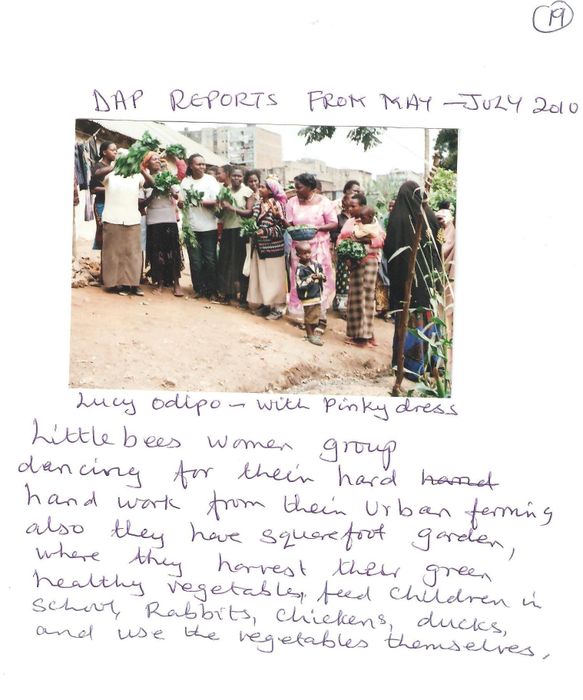 19
DAP REPORTS FROM MAY - JULY 2010
Lucy Odipo - with Pinky dress
Little bees women group
dancing for their hard hand
hand work from their Urban ferming
also they have squarefoot garden,
where they harvest their green
healthy vegetables, feed children in
School, Rabbits, chickens, ducks,
and use the vegetables themselves,